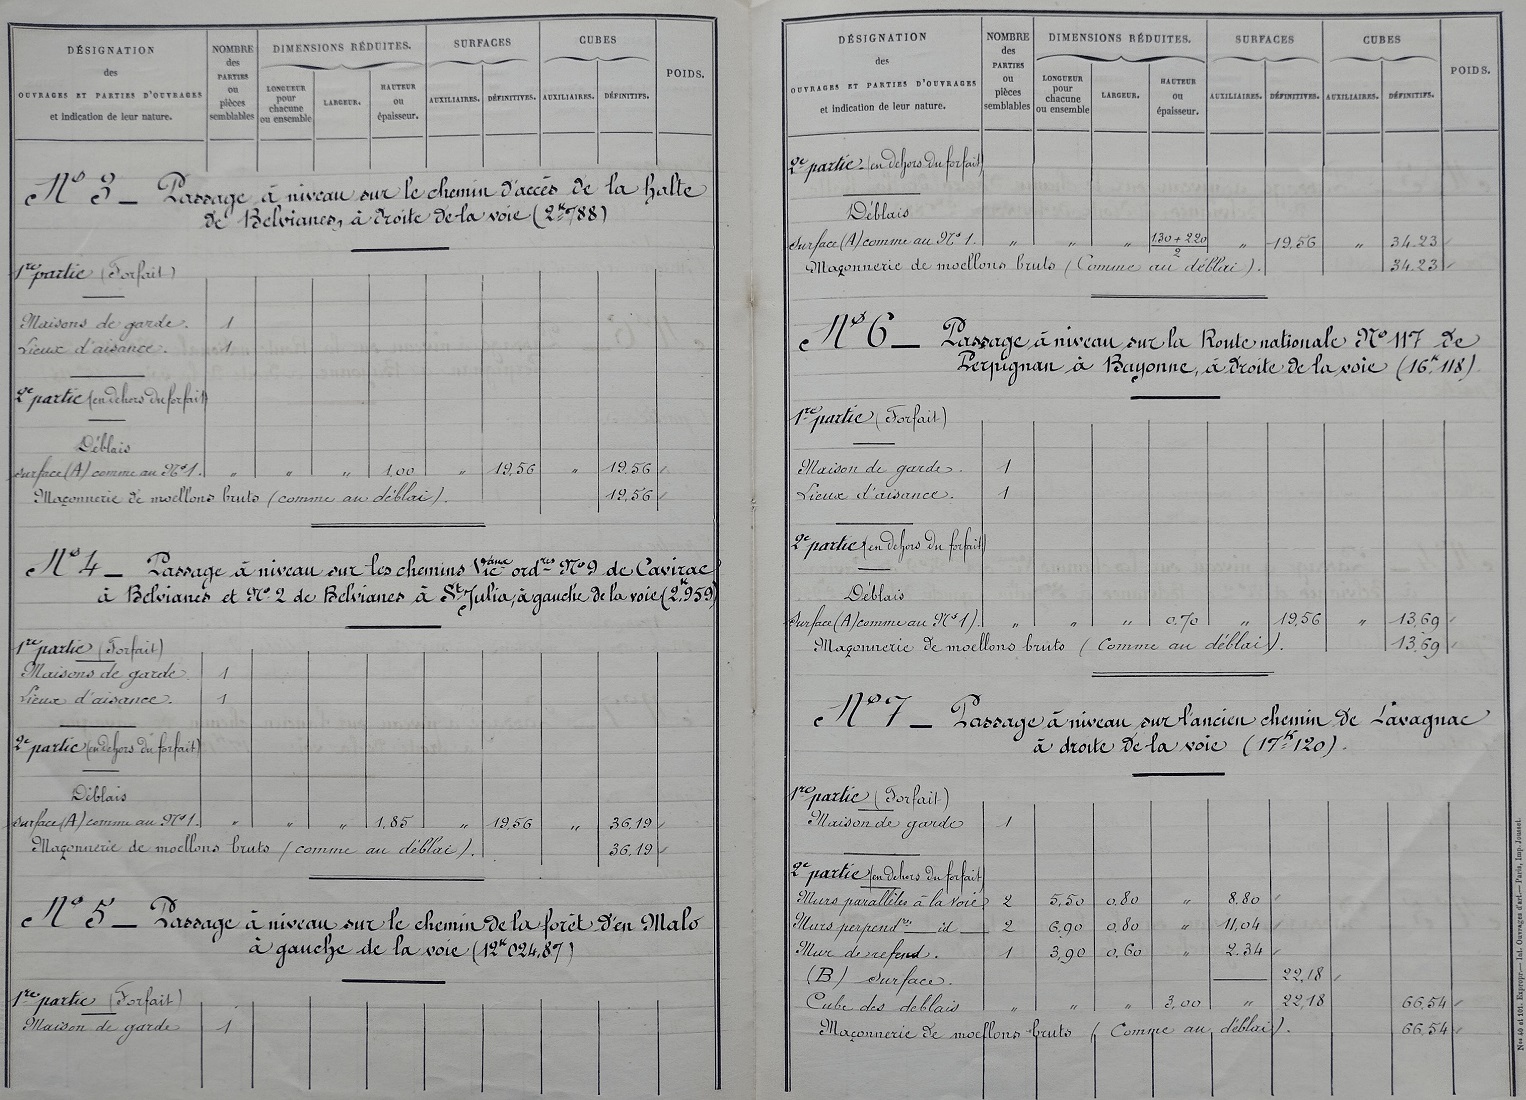 DÉSIGNATION
des
OUVRAGES ET PARTIES D'OUVRAGES
et indication de leur nature.
NOMBRE
des
PARTIES
ou
pièces
semblables
DIMENSIONS RÉDUITES.
LONGUEUR
pour
chacune
ou ensemble
LARGEUR.
HAUTEUR
ou
épaisseur.
SURFACES
AUXILIAIRES.
DÉFINITIVES.
CUBES
AUXILIAIRES.
DÉFINITIFS.
POIDS.
Nº 3 _ Passage à niveau sur le chemin d'accès de la halte
de Belvianes, à droite de la voie (2k788)
1re partie (Forfait)
Maisons de garde. 1
Lieux d'aisance. 1
2e partie (en dehors du forfait)
Déblais
Surface (A) comme au Nº 1. " " " 1,00 " 19,56 " 19,56
Maçonnerie de moellons bruts (comme au déblai). 19,56
Nº 4 _ Passage à niveau sur les chemins Vicaux ordres Nº 9 de Cavirac
à Belvianes et Nº 2 de Belvianes à St Julia, à gauche de la voie (2k959)
1re partie (Forfait)
Maisons de garde 1
Lieux d'aisance. 1
2e partie (en dehors du forfait)
Déblais
Surface (A) comme au Nº 1. " " " 1,85 " 19,56 " 36,19
Maçonnerie de moellons bruts (comme au déblai). 36,19
Nº 5 _ Passage à niveau sur le chemin de la forêt d'en Malo
à gauche de la voie (12k024,87)
1re partie (Forfait)
Maison de garde 1
DÉSIGNATION
des
OUVRAGES ET PARTIES D'OUVRAGES
et indication de leur nature.
NOMBRE
des
PARTIES
ou
pièces
semblables
DIMENSIONS RÉDUITES.
LONGUEUR
pour
chacune
ou ensemble
LARGEUR.
HAUTEUR
ou
épaisseur.
SURFACES
AUXILIAIRES.
DÉFINITIVES.
CUBES
AUXILIAIRES.
DÉFINITIFS.
POIDS.
2e partie - (en dehors du forfait)
Déblais
Surface (A) comme au Nº 1. " " 130+220/2 " 19,56 " 34.23
Maçonnerie de moellons bruts (Comme au déblai). 34.23
Nº 6 _ Passage à niveau sur la Route nationale Nº 117 de
Perpignan à Bayonne, à droite de la voie (16k.118)
1re partie (Forfait)
Maison de garde. 1
Lieux d'aisance. 1
2e partie (en dehors du forfait)
Déblais
Surface (A) comme au Nº 1). " " " 0,70 " 19,56 " 13,69
Maçonnerie de moellons bruts (Comme au déblai). 13,69
Nº 7 _ Passage à niveau sur l'ancien chemin de Lavagnac
à droite de la voie (17k120).
1re partie (Forfait)
Maison de garde 1
2e partie (en dehors du forfait)
Murs parallèles à la voie 2 5,50 0,80 " 8.80
Murs perpendres _ id _ 2 6,90 0,80 " 11,04
Mur de refend. 1 3,90 0,60 " 2.34
(B) Surface. 22,18
Cube des déblais " " " 3,00 " 22,18 66,54
Maçonnerie de moellons bruts (Comme au déblai). 66,54
Nos 40 et 101. Expropr. — Inf. Ouvrages d'art. — Paris, Imp. Jousset.